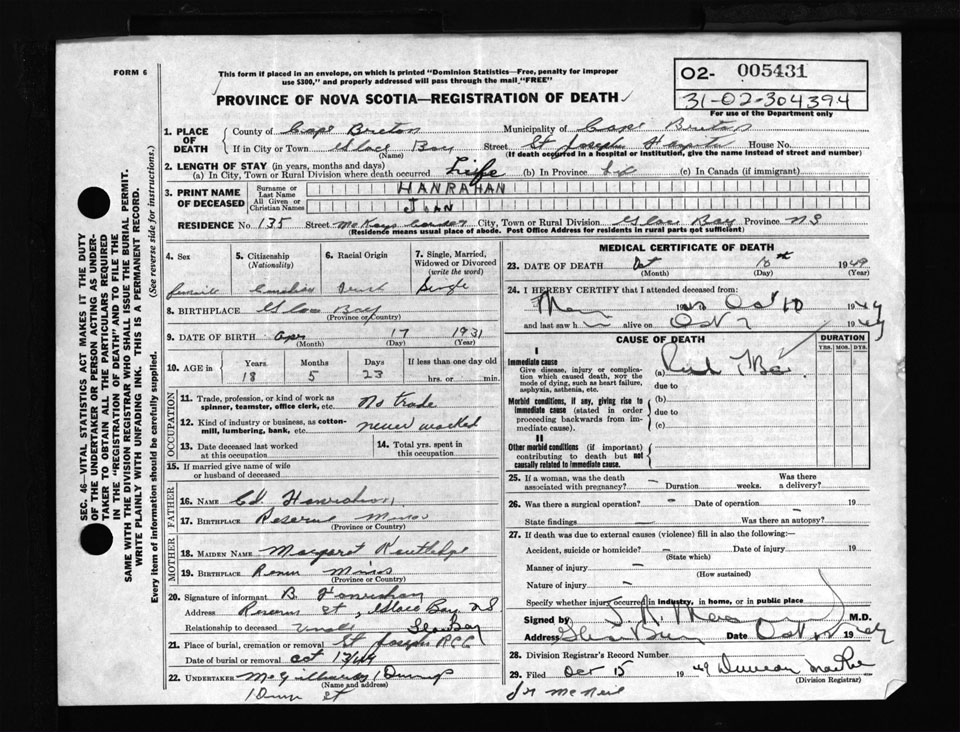 FORM 6
This form if placed in an envelope, on which is printed "Dominion Statistics—Free, penalty for improper
use $300," and properly addressed will pass through the mail "FREE"
PROVINCE OF NOVA SCOTIA—REGISTRATION OF DEATH
O2- 005431
31-02-304394
For use of the Department only
SEC. 46—VITAL STATISTICS ACT MAKES IT THE DUTY
OF THE UNDERTAKER OR PERSON ACTING AS UNDER-
TAKER TO OBTAIN ALL THE PARTICULARS REQUIRED
IN THE "REGISTRATION OF DEATH" AND TO FILE THE
SAME WITH THE DIVISION REGISTRAR WHO SHALL ISSUE THE BURIAL PERMIT.
WRITE PLAINLY WITH UNFADING INK. THIS IS A PERMANENT RECORD.
Every item of information should be carefully supplied. (See reverse side for instructions.)
1. PLACE OF DEATH County of Cape Breton Municipality of Cape Breton
If in City or Town Glace Bay Street St Joseph Hospital House No.
(Name) (If death occurred in a hospital or institution, give the name instead of street and number)
2. LENGTH OF STAY (in years, months and days)
(a) In City, Town or Rural Division where death occurred Life (b) In Province (c) In Canada (if immigrant)
3. PRINT NAME OF DECEASED Surname or Last Name HANRAHAN
All Given or Christian Names JEAN
RESIDENCE No. 135 Street McKays Corner City, Town or Rural Division Glace Bay Province NS
(Residence means usual place of abode. Post Office Address for residents in rural parts not sufficient)
4. Sex 5. Citizenship (Nationality) 6. Racial Origin 7. Single, Married, Widowed or Divorced (write the word)
Female Canadian Irish Single
8. BIRTHPLACE Glace Bay
(Province or Country)
9. DATE OF BIRTH Apr 17 1931
(Month) (Day) (Year)
10. AGE in Years Months Days If less than one day old
18 5 23 hrs. or min.
OCCUPATION
11. Trade, profession, or kind of work as
spinner, teamster, office clerk, etc. no trade
12. Kind of industry or business, as cotton-
mill, lumbering, bank, etc. never worked
13. Date deceased last worked
at this occupation
14. Total yrs. spent in
this occupation
15. If married give name of wife
or husband of deceased
FATHER
16. NAME Ed. Hanrahan
17. BIRTHPLACE Reserve Mines
(Province or Country)
MOTHER
18. MAIDEN NAME Margaret Routledge
19. BIRTHPLACE Reserve Mines
(Province or Country)
20. Signature of informant B Hanrahan
Address Reserve St, Glace Bay NS
Relationship to deceased Uncle Glace Bay
21. Place of burial, cremation or removal St Joseph
Date of burial or removal Oct 12/49
22. UNDERTAKER
(Name and address)
St
MEDICAL CERTIFICATE OF DEATH
23. DATE OF DEATH Oct 10th 1949
(Month) (Day) (Year)
24. I HEREBY CERTIFY that I attended deceased from:
19 Oct 10 1949
and last saw h alive on Oct 1949
CAUSE OF DEATH DURATION
YRS. MOS. DYS.
I
Immediate cause
Give disease, injury or complica-
tion which caused death, not the
mode of dying, such as heart failure,
asphyxia, asthenia, etc.
(a)
due to
Morbid conditions, if any, giving rise to
immediate cause (stated in order
proceeding backwards from im-
mediate cause).
(b)
due to
(c)
II
Other morbid conditions (if important)
contributing to death but not
causally related to immediate cause.
25. If a woman, was the death
associated with pregnancy? — Duration weeks. Was there
a delivery?
26. Was there a surgical operation? — Date of operation — 19
State findings — Was there an autopsy?
27. If death was due to external causes (violence) fill in also the following:—
Accident, suicide or homicide? — Date of injury 19
(State which)
Manner of injury —
(How sustained)
Nature of injury —
Specify whether injury occurred in industry, in home, or in public place
Signed by M.D.
Address Glace Bay Date Oct 19
28. Division Registrar's Record Number
29. Filed Oct 15 1949 Duncan
(Division Registrar)